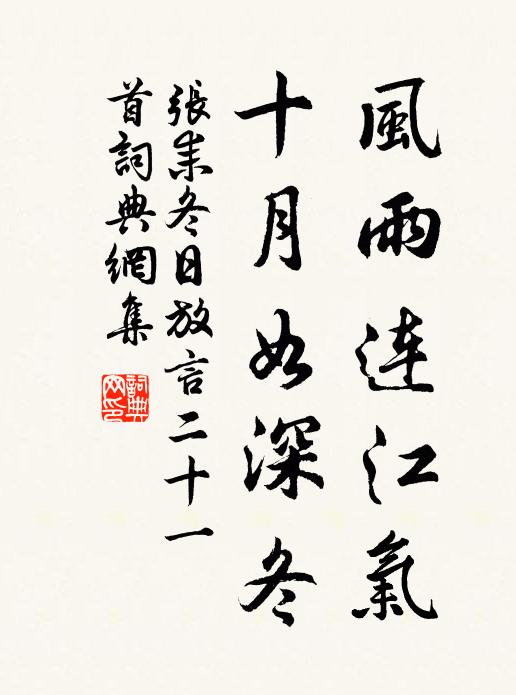 風雨連江氣
十月如深冬
張耒冬日放言二十一
首詞典網集
詞典
网印